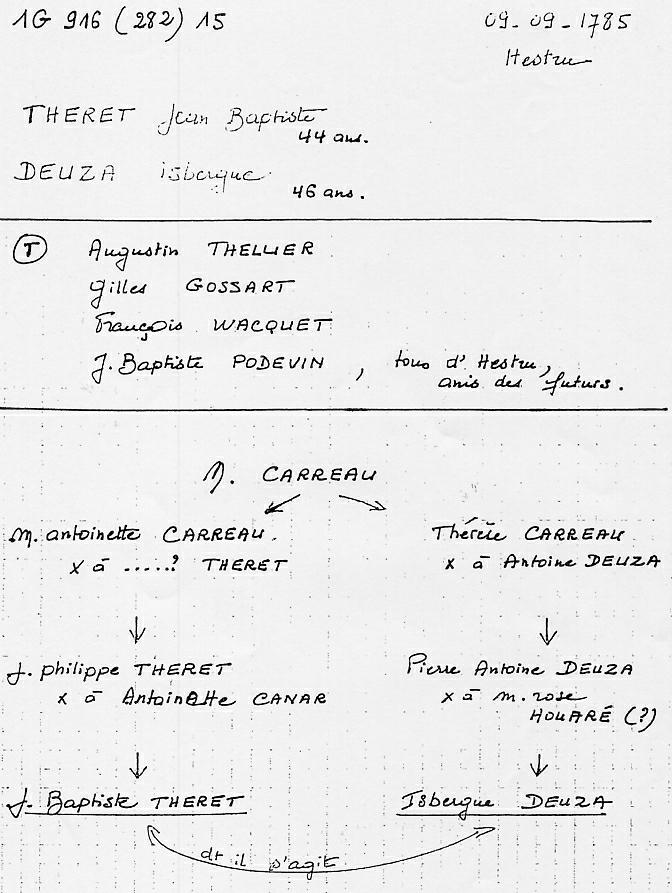 1G 916 (282) 15
09-09-1785
Hestru
THERET Jean Baptiste
44 ans.
DEUZA isbergue
46 ans.
T Augustin THELLIER
Gilles GOSSART
François WACQUET
J. Baptiste PODEVIN, tous d'Hestru,
amis des futurs.
N. CARREAU
M. antoinette CARREAU.
x à .....? THERET
Thérèse CARREAU
x à Antoine DEUZA
J. philippe THERET
x à Antoinette CANAR
Pierre Antoine DEUZA
x à m. rose
HOUARÉ (?)
J. Baptiste THERET
Isbergue DEUZA
dt il s'agit